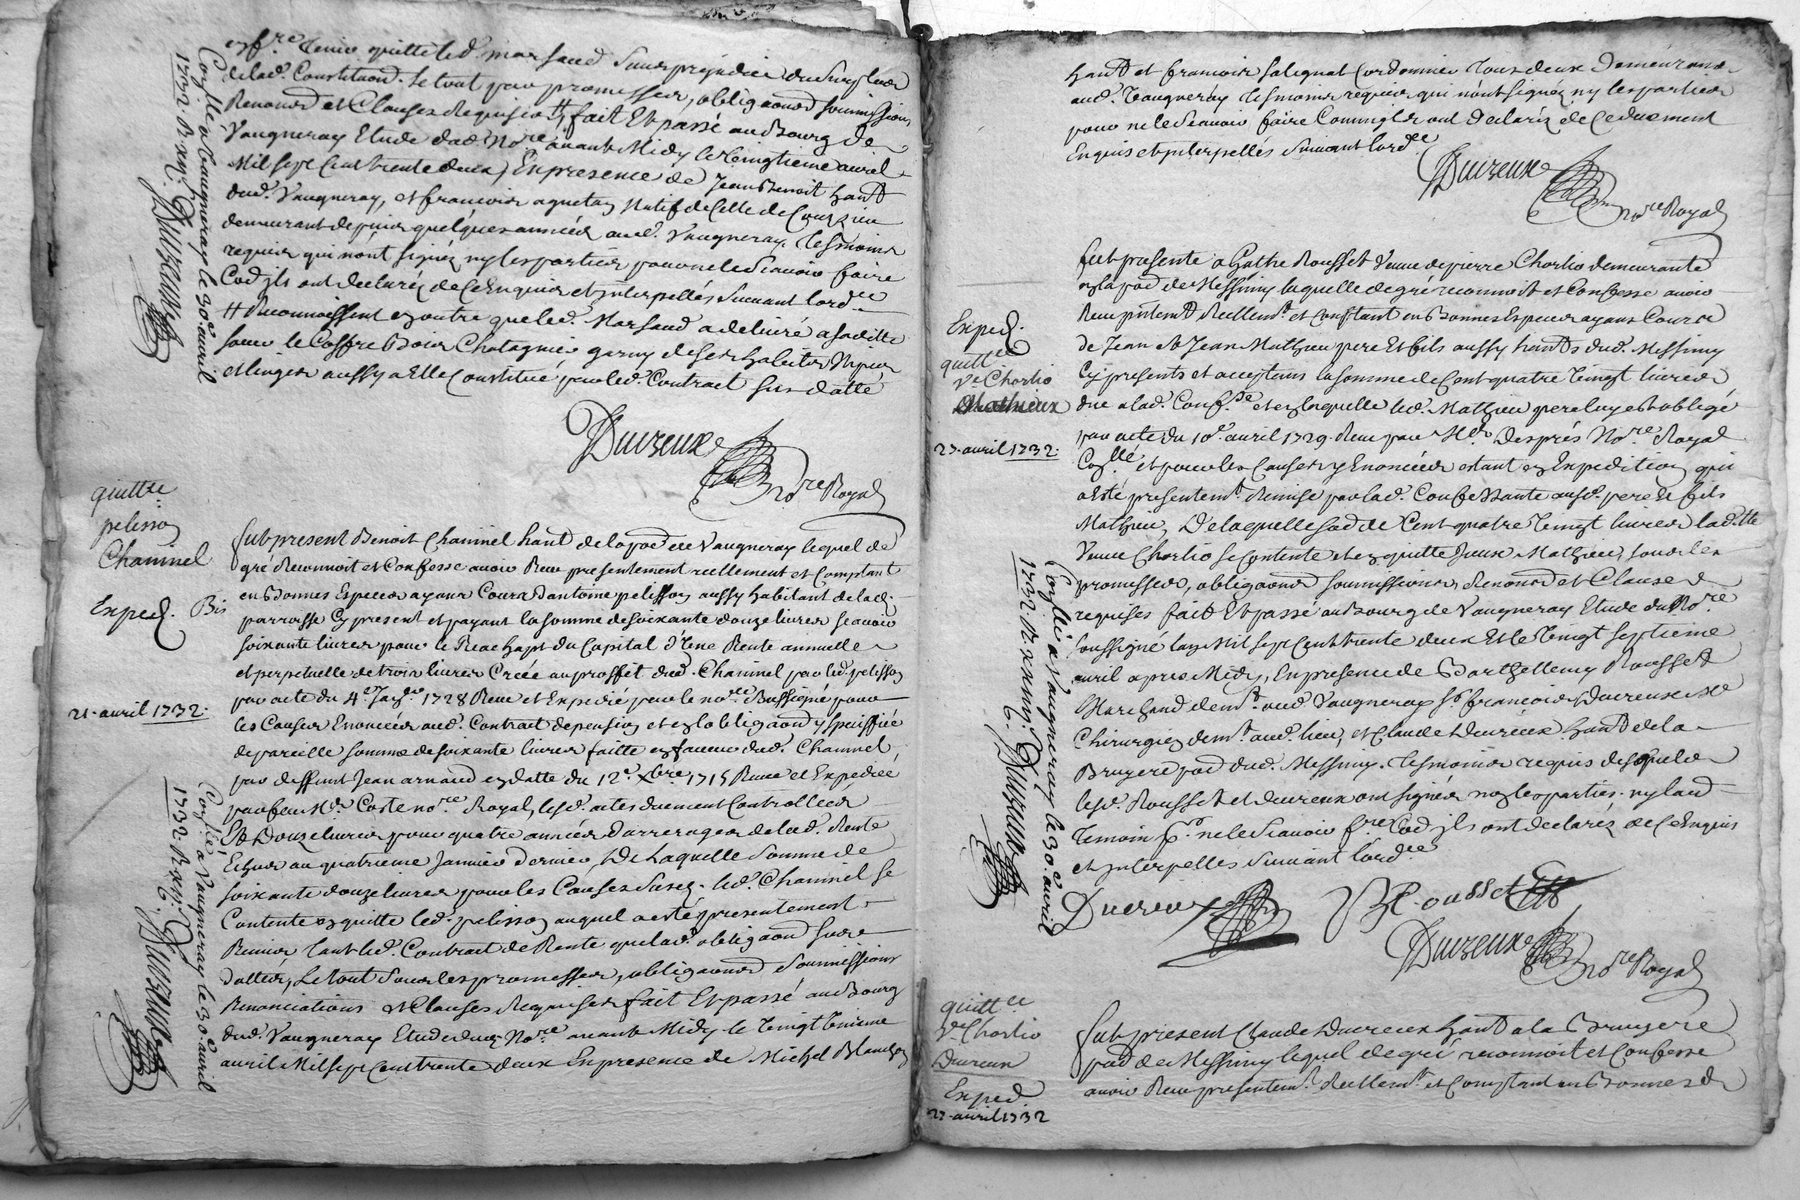 quitte led. marsaud sans prejudice du surplus
delad. Constitutiond. le tout par promesses, obligaons soumissions
Renonons et Clauses Requises # fait Et passé au Bourg de
Vaugneray Etude dud. No.re avant Midy le vingtieme avril
Mil sept Cent trente deux, En presence de Jean Benoit hant
dud. Vaugneray, et francois natif de Celle de Courzieu
demeurant depuis quelques années aud. Vaugneray tesmoins
requis qui n'ont signéz ny les parties pour ne le scavoir faire
Cod ils ont declaréz de ce Enquis et interpellés suivant lord.ce
# Reconnoissent en outre que led. Marsaud a delivré a sa ditte
le Coffre Bois Chatagnier garny de ses habits
et linges aussy a Elle Constitué par led. Contract sus datté
Duvreux
no.re Royal
Con.llé a Vaugneray le 30e. avril
1732. R.
Duvreux
quitt.ce
pelisson
Chaninel
Exped. Bis
21. avril 1732.
fut present Benoit Chaninel hant de la pad de Vaugneray lequel de
gré Reconnoit et Confesse avoir Reçu presentement reellement et Comptant
en Bonnes Especes ayans Cours d'antoine pelisson aussy habitant de lad.
parroisse Cy present et payant la somme de soixante douze livres scavoir
soixante livres pour le Reachapt du Capital d'Une Rente annuelle
et perpetuelle de trois livres Créée au proffet dud. Chaninel par led. pelisson
par acte du 4e. Jan.er 1728 Reçu et Expedié par le no.re soussigné pour
les Causes Enoncées aud. Contract de pension et en l'obligaon y speciffiée
de pareille somme de soixante livres faitte en faveur dud. Chaninel
par deffunt Jean arnaud en datte du 12e. Xbre. 1715 Reçue et Expediée
par feu M.e Coste no.re Royal, lesd. actes duement Controllées
Et Douze livres pour quatre années d'arrerages de lad. Rente
Echues au quatrieme Janvier dernier, De Laquelle somme de
soixante douze livres pour les Causes susd. led. Chaninel se
Contente en quitte led. pelisson auquel a esté presentement
Remis tant led. Contract de Rente que lad. obligaon sus
dattés, Le tout sous les promesses, obligaons soumissions
Renonciations et Clauses Requises fait Et passé au Bourg
dud. Vaugneray Etude dud. No.re avant Midy le vingt Unieme
avril Mil sept Cent trente deux En presence de Michel Blanchon
Con.llé a Vaugneray le 30e. avril
1732. R.
Duvreux
hant et francois salignat Cordonnier tous deux demeurans
aud. Vaugneray tesmoins requis qui n'ont signéz ny les parties
pour ne le scavoir faire Comm' ils ont declaréz de ce duement
Enquis et interpellés suivant l'ord.ce
Duvreux
no.re Royal
Exped.
quitt.ce
V.e Chorlio
Mathieux
27. avril 1732.
fut presente agathe Rousset Veuve de pierre Chorlio demeurante
en la pad de Messimy laquelle de gré reconnoit et Confesse avoir
Reçu p.ntem.t Réellem.t et Comptant en Bonnes Especes ayans Cours
de Jean & Jean Mathieu pere Et fils aussy hants dud. Messimy
Cy presents et acceptans la somme de Cent quatre Vingt livres
due a lad. Conf.te et en laquelle led. Mathieu pere luy est obligé
par acte du 10e. avril 1729. Reçu par M.e Després No.re Royal
Con.llé et pour les Causes y Enoncées estant en Expedition qui
a esté presentem.t Remise par lad. Confessante ausd. pere & fils
Mathieu, De laquelle sad. de Cent quatre Vingt livres laditte
Veuve Chorlio se Contente et en quitte Iceux Mathieu, sous les
promesses, obligaons soumissions Renonons et Clauses
requises fait Et passé au Bourg de Vaugneray Etude du No.re
soussigné l'an Mil sept Cent trente deux Et le Vingt septieme
avril apres Midy, En presence de Barthellemy Rousset
Marchand dem.t aud. Vaugneray S.r francois Ducreux M.e
Chirurgien dem.t aud. lieu, et Claude Ducreux hant de la
Bruyere pad dud. Messimy tesmoins requis desquels
lesd. Rousset et Ducreux ont signés non les parties ny laud
temoin p.r ne le scavoir f.re Cod ils ont declaréz de ce Enquis
et interpellés suivant l'ord.ce
Ducreux B Rousset
Duvreux
no.re Royal
Con.llé a Vaugneray le 30e. avril
1732. R.
Duvreux
quitt.ce
V.e Chorlio
Ducreux
Exped.
27. avril 1732
fut present Claude Ducreux hant a la Bruyere
pad de Messimy lequel de gré reconnoit et Confesse
avoir Reçu presentem.t Réellem.t et Comptant en Bonnes